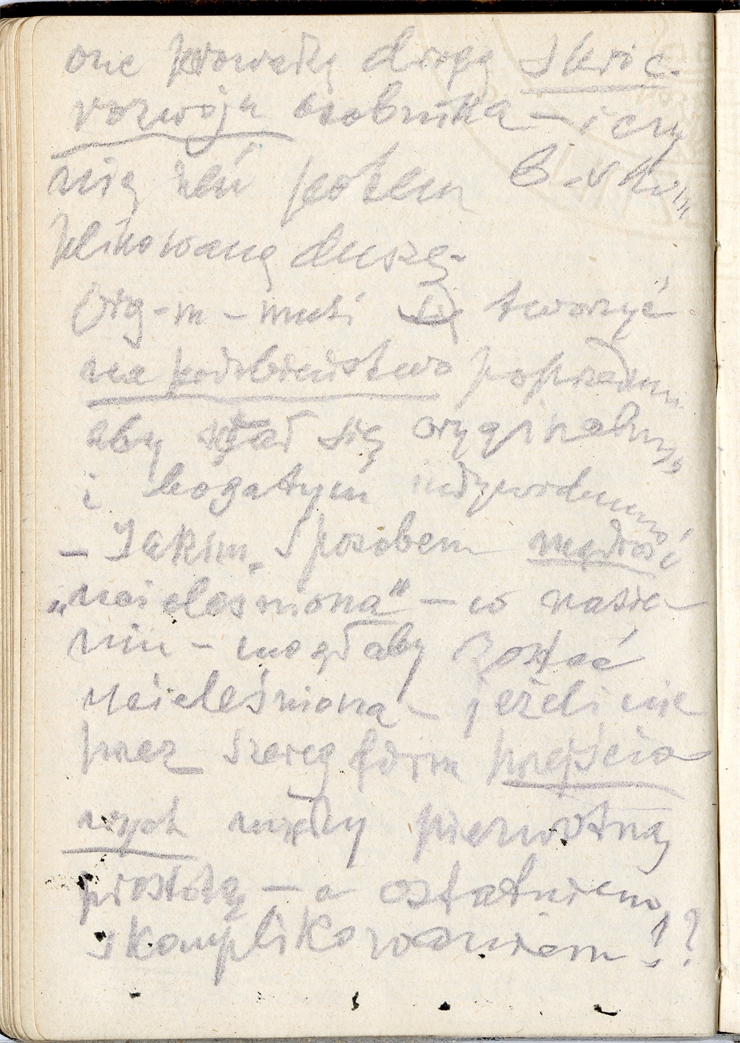 one prowadzą drogą skróc.
rozwoju osobnika – i czy
nią zeń potem b. skom
plikowaną duszę.
Org-m – musi się tworzyć
na podobieństwo poprzedni
aby stał się oryginalnym
i bogatym indywidualność
– Jakim sposobem mądrość
„ucieleśniona" – w nasie-
niu – mogłaby zostać
ucieleśniona – jeżeli nie
przez szereg form przejścio
wych między pierwotną
prostotą – a ostatniem
skomplikowaniem!?